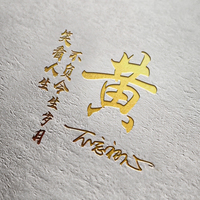 黄
笑看人生
不负今生岁月